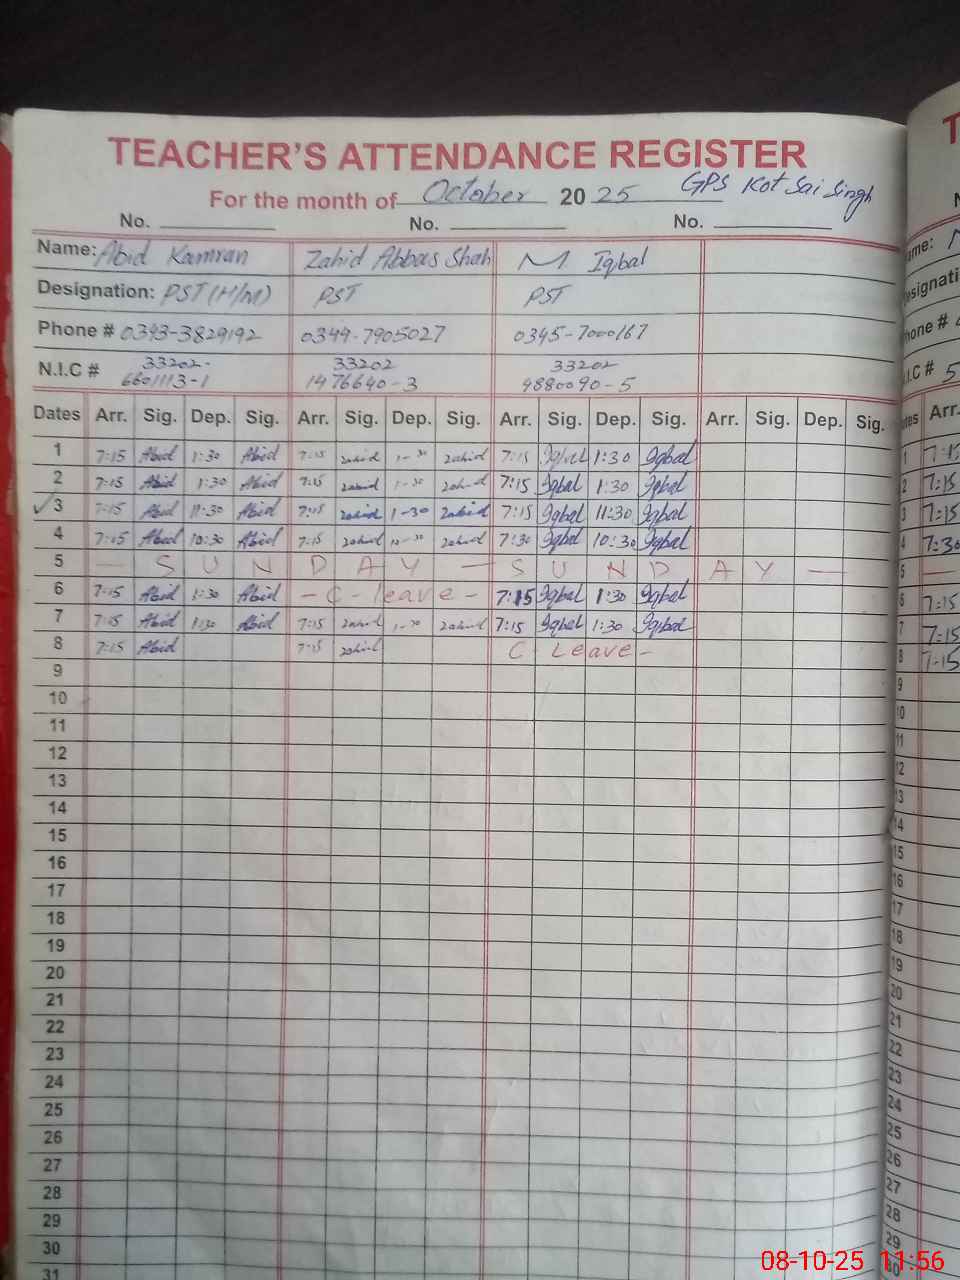 TEACHER'S ATTENDANCE REGISTER
For the month of October 2025 GPS Kot Sai Singh
No. No. No.
Name: Abid Kamran Zahid Abbas Shah M Iqbal
Designation: PST (H/M) PST PST
Phone # 0343-3829192 0344-7905027 0345-7000167
N.I.C # 33202-6601113-1 33202 1476640-3 33202 4880090-5
Dates Arr. Sig. Dep. Sig. Arr. Sig. Dep. Sig. Arr. Sig. Dep. Sig. Arr. Sig. Dep. Sig.
1 7:15 Abid 1:30 Abid 7:15 zahid 1-30 zahid 7:15 Iqbal 1:30 Iqbal
2 7:15 Abid 1:30 Abid 7:15 zahid 1-30 zahid 7:15 Iqbal 1:30 Iqbal
3 7:15 Abid 11:30 Abid 7:15 zahid 1-30 zahid 7:15 Iqbal 11:30 Iqbal
4 7:15 Abid 10:30 Abid 7:15 zahid 10-30 zahid 7:30 Iqbal 10:30 Iqbal
5 — SUNDAY — SUNDAY —
6 7:15 Abid 1:30 Abid - C - leave - 7:15 Iqbal 1:30 Iqbal
7 7:15 Abid 1:30 Abid 7:15 zahid 1-30 zahid 7:15 Iqbal 1:30 Iqbal
8 7:15 Abid 7:15 zahid C Leave -
9
10
11
12
13
14
15
16
17
18
19
20
21
22
23
24
25
26
27
28
29
30
31
08-10-25 11:56